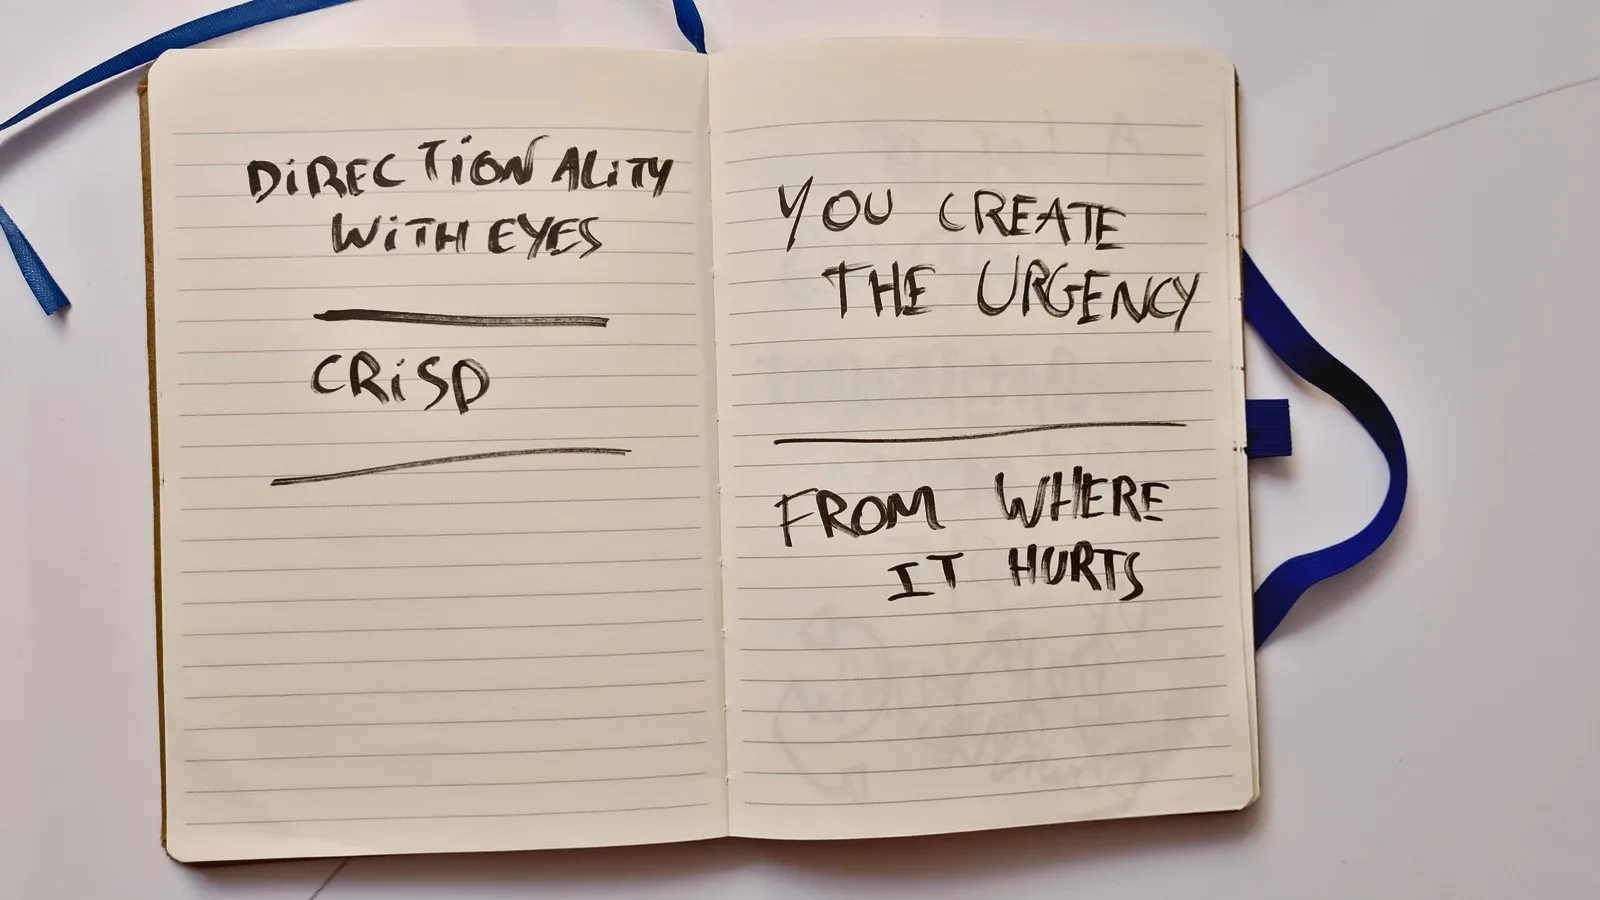 DiRECTiONALiTY
WiTH EYES
CRiSP
YOU CREATE
THE URGENCY
FROM WHERE
IT HURTS